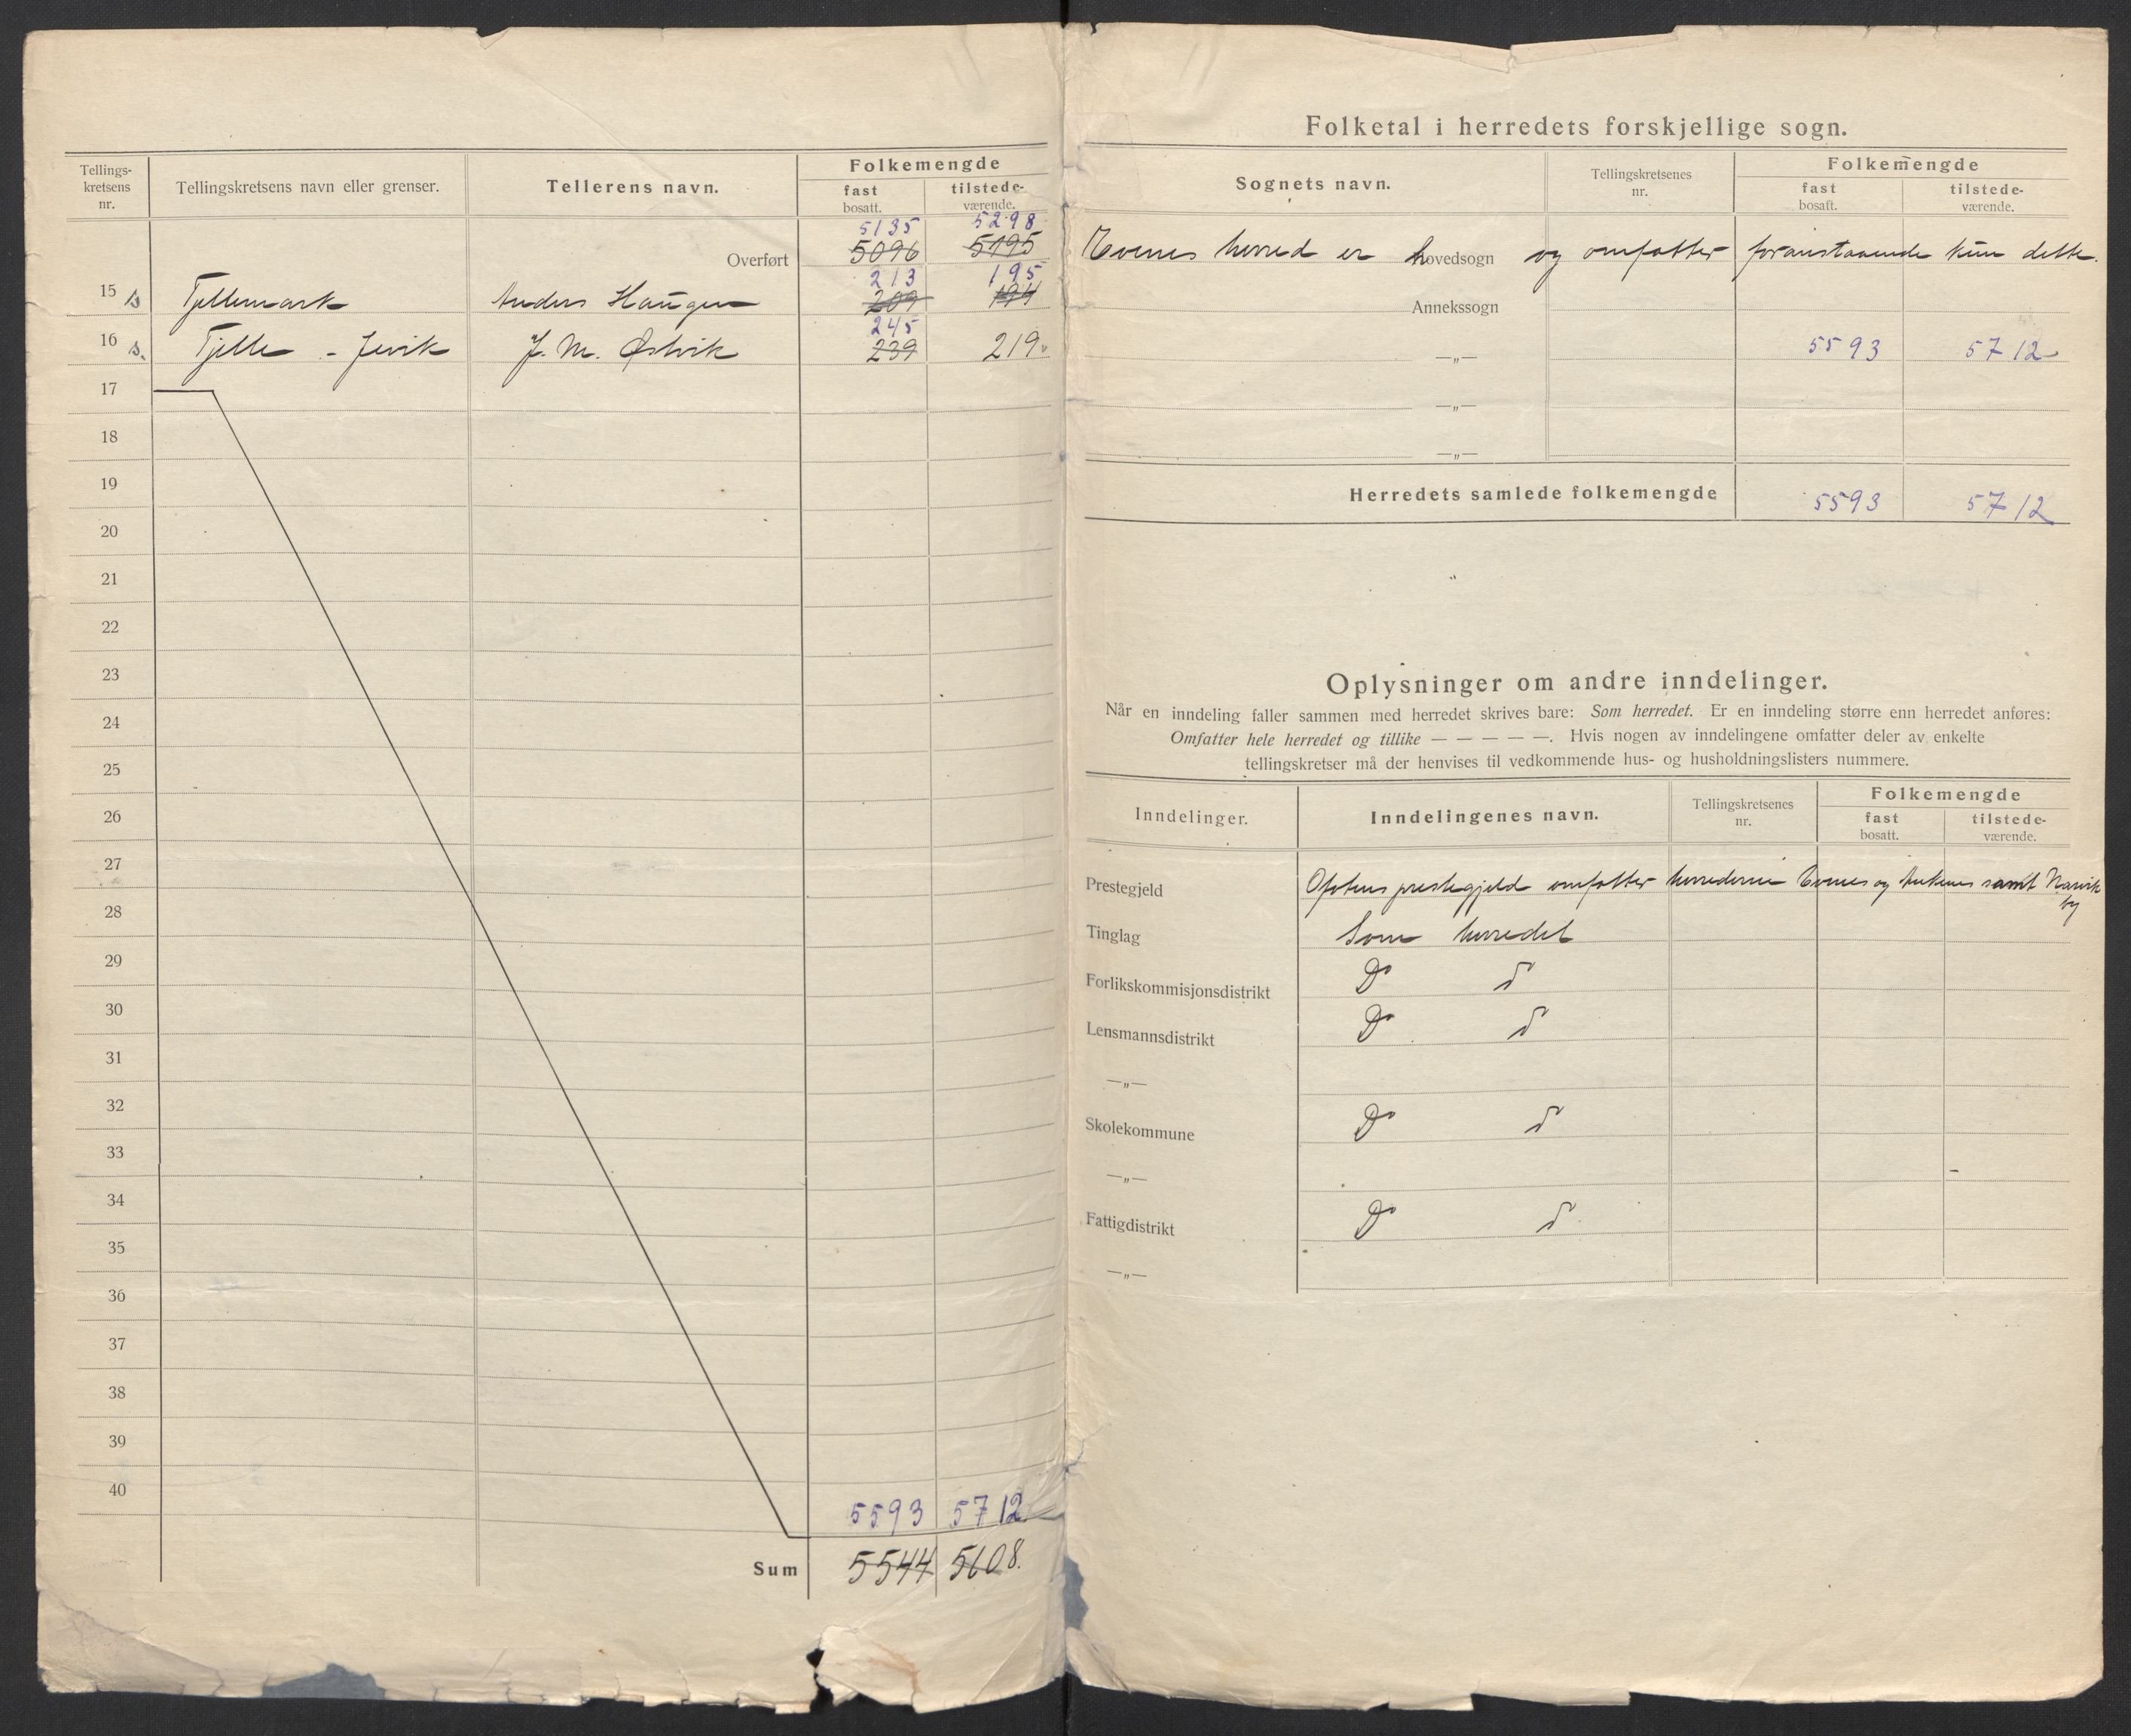 Tellings-
kretsens
nr.
Tellingskretsens navn eller grenser.
Tellerens navn.
Folkemengde
fast
bosatt.
tilstede-
værende.
5135 5298
Overført 5096 5195
213 195
15 s Tjellemark Anders Haugen 209 194
245
16 s. Tjelle - Jevik J. M. Østvik 239 219
17
18
19
20
21
22
23
24
25
26
27
28
29
30
31
32
33
34
35
36
37
38
39
40
5593 5712
Sum 5544 5608.
Folketal i herredets forskjellige sogn.
Sognets navn.
Tellingskretsenes
nr.
Folkemengde
fast
bosatt.
tilstede-
værende.
Evenes herred er hovedsogn og omfatter foranstaaende kun dette.
Annekssogn
—„— 5593 5712
—„—
—„—
Herredets samlede folkemengde 5593 5712
Oplysninger om andre inndelinger.
Når en inndeling faller sammen med herredet skrives bare: Som herredet. Er en inndeling større enn herredet anføres:
Omfatter hele herredet og tillike — — — — —. Hvis nogen av inndelingene omfatter deler av enkelte
tellingskretser må der henvises til vedkommende hus- og husholdningslisters nummere.
Inndelinger.
Inndelingenes navn.
Tellingskretsenes
nr.
Folkemengde
fast
bosatt.
tilstede-
værende.
Prestegjeld Ofotens prestegjeld omfatter herrederne Evenes og Ankenes samt Narvik
by
Tinglag Som herredet
Forlikskommisjonsdistrikt Do do
Lensmannsdistrikt Do do
—„—
Skolekommune Do do
—„—
Fattigdistrikt Do do
—„—